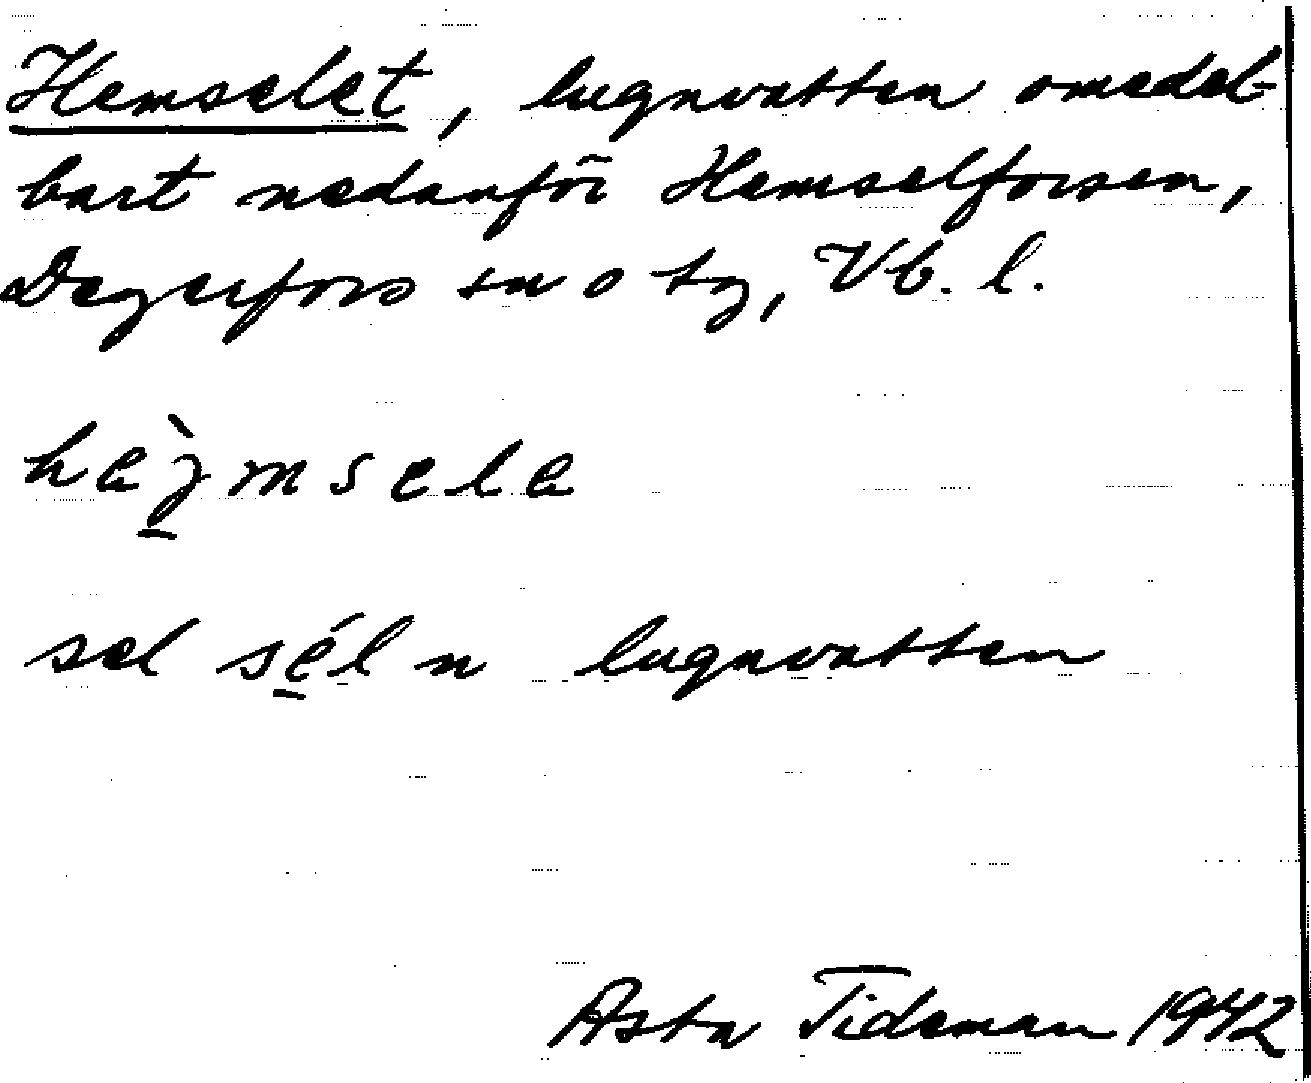 Hemselet, lugnvatten omedel-
bart nedanför Hemselforsen,
Degerfors sn o tg, Vb. l.
sel séln lugnvatten
Asta Tideman 1942